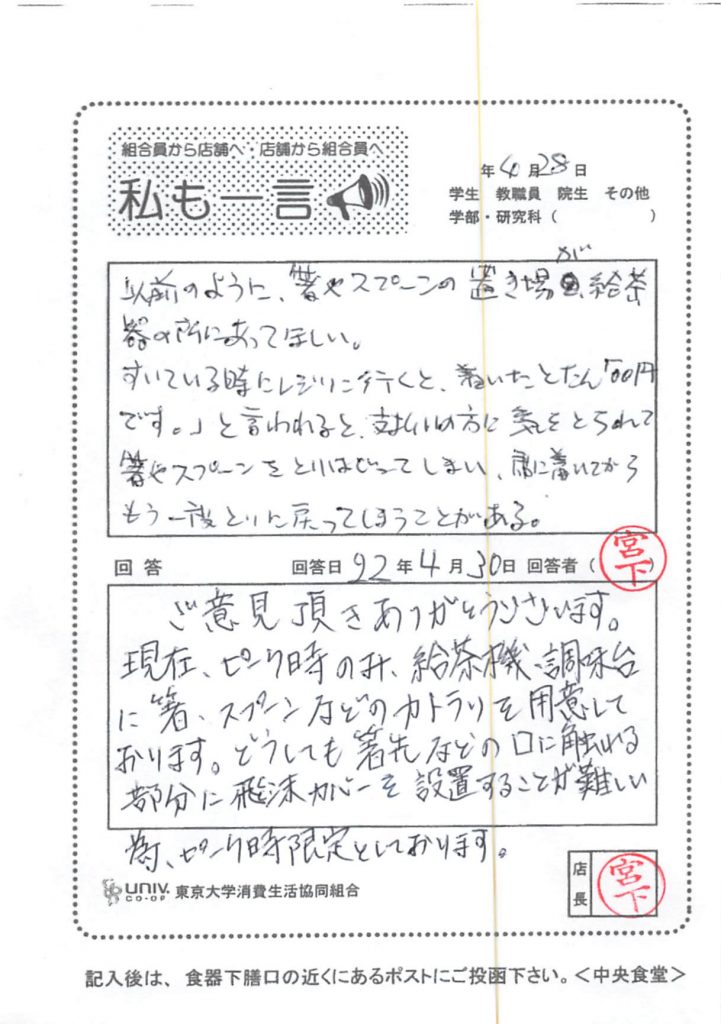 組合員から店舗へ・店舗から組合員へ
私も一言
年4月28日
学生 教職員 院生 その他
学部・研究科（　　　　　）
以前のように、箸やスプーンの置き場が給茶
器の所にあってほしい。
すいている時にレジに行くと、着いたとたん「00円
です。」と言われると、支払いの方に気をとられて
箸やスプーンをとりはぐってしまい、席に着いてから
もう一度とりに戻ってしまうことがある。
回答 回答日 92年4月30日 回答者（宮下）
ご意見頂きありがとうございます。
現在、ピーク時のみ、給茶機、調味台
に箸、スプーンなどのカトラリを用意して
おります。どうしても箸先などの口に触れる
部分に飛沫カバーを設置することが難しい
為、ピーク時限定としております。
UNIV. CO-OP 東京大学消費生活協同組合
店長 宮下
記入後は、食器下膳口の近くにあるポストにご投函下さい。＜中央食堂＞